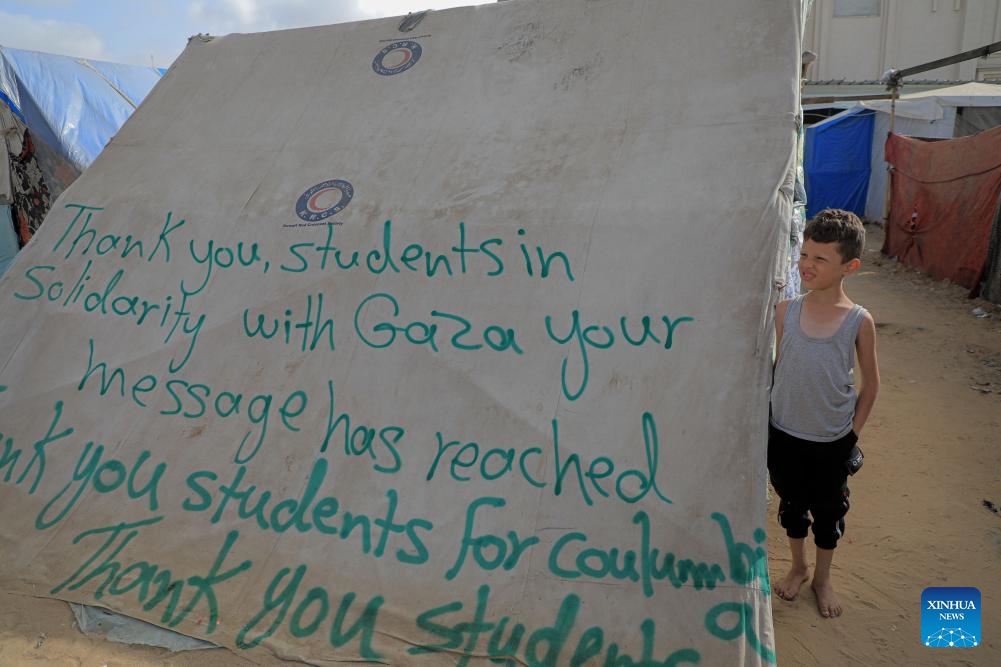 K.R.C.S.
Thank you, students in
Solidarity with Gaza your
message has reached
nk you students for coulumbi
a
Thank you students
XINHUA
NEWS